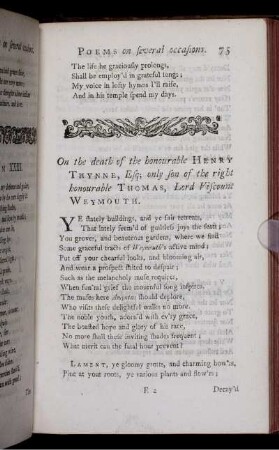 POEMS on several occasions. 75
The life he graciously prolongs,
Shall be employ'd in grateful songs;
My voice in lofty hymns I'll raise,
And in his temple spend my days.
On the death of the honourable HENRY
THYNNE, Esq; only son of the right
honourable THOMAS, Lord Viscount
WEYMOUTH.
YE stately buildings, and ye fair retreats,
That lately seem'd of guiltless joys the seats;
You groves, and beauteous gardens, where we find
Some graceful tracts of Weymouth's active mind;
Put off your chearful looks, and blooming air,
And wear a prospect suited to despair;
Such as the melancholy muse requires,
When fun'ral grief the mournful song inspires.
The master's here should deplore,
Who visits these delightful walks no more.
The noble youth, adorn'd with ev'ry grace,
The boasted hope and glory of his race,
No more shall these inviting shades frequent;
What merit can the fatal hour prevent!
LAMENT, ye gloomy grotts, and charming bow'rs,
Pine at your roots, ye various plants and flow'rs;
E 2 Decay'd